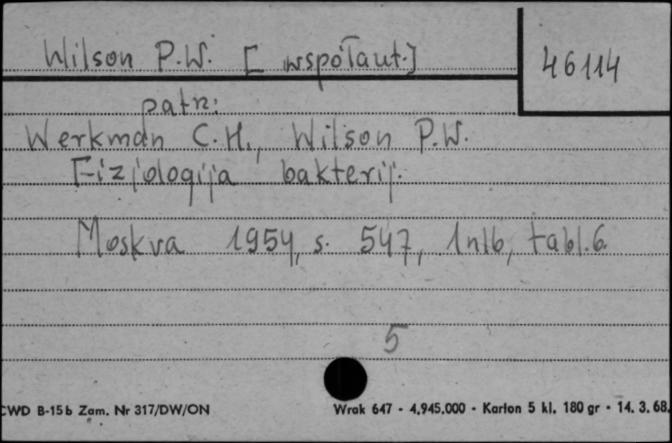 Wilson P.W. [współaut.]
46114
patrz:
Werkman C.H., Wilson P.W.
Fizjologija bakterij.
Moskva 1954, s. 547, 1nlb, tabl. 6.
5
CWD B-15b Zam. Nr 317/DW/ON
Wrak 647 - 4.945.000 - Karton 5 kl. 180 gr - 14. 3. 68.